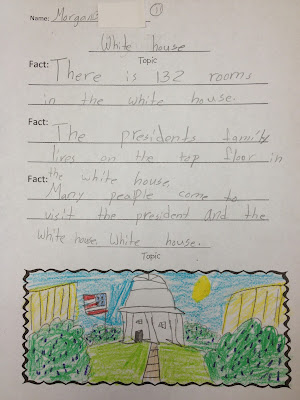 Name: Morgan 11
White house
Topic
Fact: There is 132 rooms
in the white house.
Fact:
The presidents family
lives on the top floor in
Fact: the white house
Many people come to
visit the president and the
white house. White house.
Topic